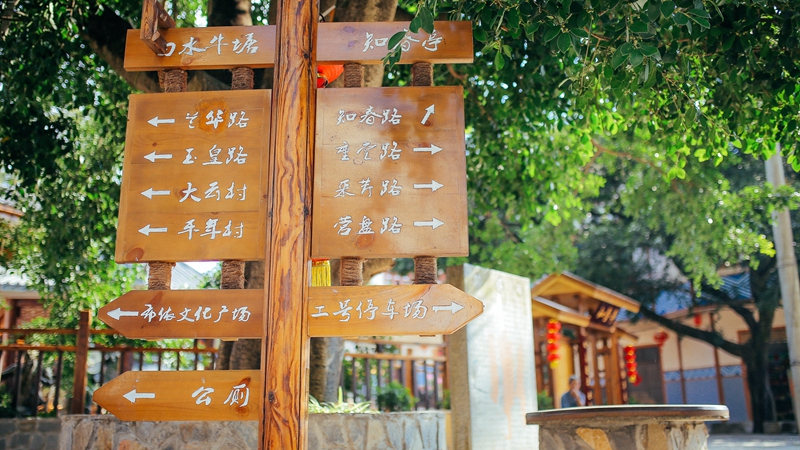 水牛塘
知春亭
← 兰华路
← 玉皇路
← 大云村
← 平年村
知春路 ↗
采芳路 →
营盘路 →
← 布依文化广场
工号停车场 →
← 公厕